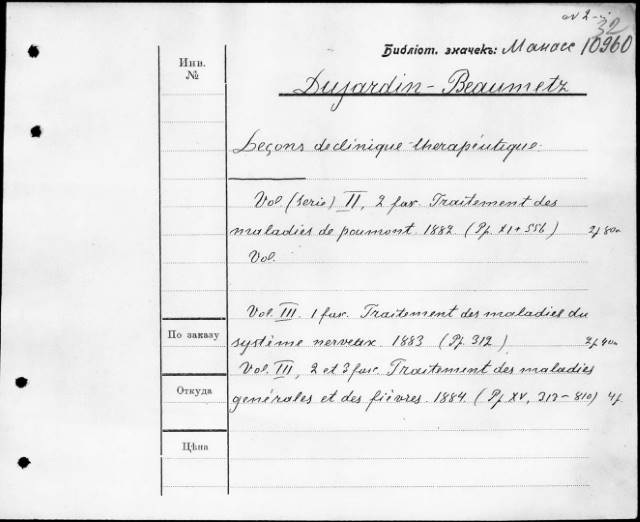 32
Библіот. значекъ: Манасс 10960
Инв.
№
Dujardin-Beaumetz
Leçons de clinique thérapéutique.
Vol (Serie) II, 2 fax. Traitement des
maladies de poumont. 1882. (Pf. XI + 556)
Vol.
Vol. III. 1 fax. Traitement des maladiel du
По заказу
système nerveux. 1883 (Pf. 312)
Vol. III, 2 et 3 fasc. Traitement des maladies
Откуда
genérales et des fièvres. 1884. (Pf XV, 313-810) 4f
Цѣна